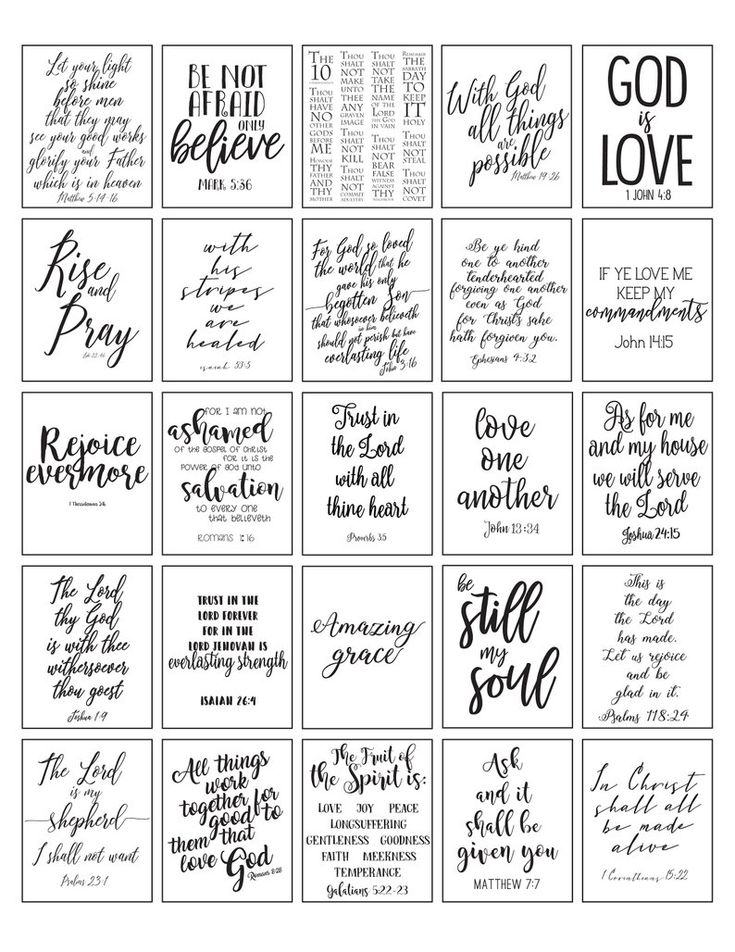 Let your light
so shine
before men
that they may
see your good works
and
glorify your Father
which is in heaven
Matthew 5:14-16
BE NOT
AFRAID
ONLY
believe
MARK 5:36
THE
10
THOU
SHALT
HAVE
NO
OTHER
GODS
BEFORE
ME
HONOUR
THY
FATHER
AND
THY
MOTHER
THOU
SHALT
NOT
MAKE
UNTO
THEE
ANY
GRAVEN
IMAGE
THOU
SHALT
NOT
KILL
THOU
SHALT
NOT
COMMIT
ADULTERY
THOU
SHALT
NOT
TAKE
THE
NAME
OF THE
LORD
THY GOD
IN VAIN
THOU
SHALT
NOT
BEAR
FALSE
WITNESS
AGAINST
THY
REMEMBER
THE
SABBATH
DAY
TO
KEEP
IT
HOLY
THOU
SHALT
NOT
STEAL
THOU
SHALT
NOT
COVET
With God
all things
are
possible
Matthew 19:26
GOD
is
LOVE
1 JOHN 4:8
Rise
and
Pray
with
his
stripes
we
are
healed
isaiah 53:5
For God so loved
the world that he
gave his only
begotten Son
that whosoever believeth
in him
should not perish but have
everlasting life
John 3:16
Be ye kind
one to another
tenderhearted
forgiving one another
even as God
for Christ's sake
hath forgiven you.
Ephesians 4:32
IF YE LOVE ME
KEEP MY
commandments
John 14:15
Rejoice
evermore
FOR I AM NOT
ashamed
OF THE GOSPEL OF CHRIST
FOR IT IS THE
POWER OF GOD UNTO
salvation
TO EVERY ONE
THAT BELIEVETH
ROMANS 1:16
Trust in
the Lord
with all
thine heart
Proverbs 3:5
love
one
another
John 13:34
As for me
and my house
we will serve
the Lord
Joshua 24:15
The Lord
thy God
is with thee
withersoever
thou goest
Joshua 1:9
TRUST IN THE
LORD FOREVER
FOR IN THE
LORD JEHOVAH IS
everlasting strength
ISAIAH 26:4
Amazing
grace
be
still
my
soul
This is
the day
the Lord
has made.
Let us rejoice
and be
glad in it.
Psalms 118:24
The Lord
is my
shepherd
I shall not want
Psalms 23:1
All things
work
together for
good to
them that
love God
Romans 8:28
The Fruit of
the Spirit is:
LOVE JOY PEACE
LONGSUFFERING
GENTLENESS GOODNESS
FAITH MEEKNESS
TEMPERANCE
Galatians 5:22-23
Ask
and it
shall be
given you
MATTHEW 7:7
In Christ
shall all
be made
alive
1 Corinthians 15:22